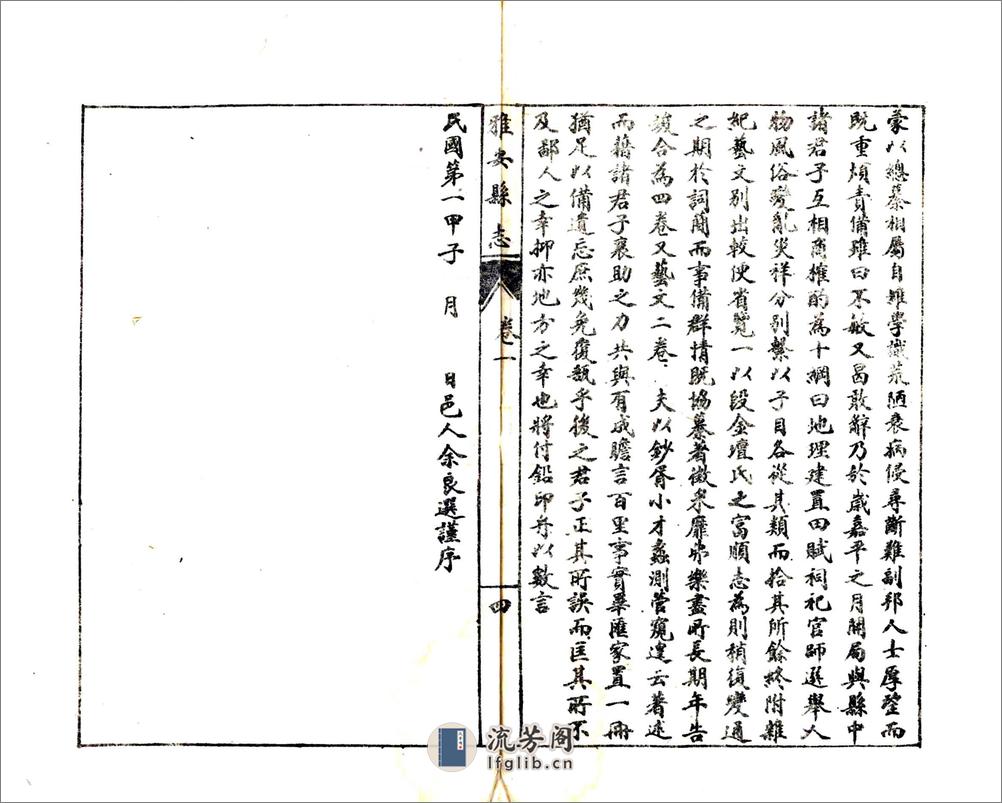 蒙以總纂相屬自雖學識荒陋衰病侵尋斷難副邦人士厚望而
既重煩責備雖曰不敏又曷敢辭乃於歲嘉平之月開局與縣中
諸君子互相商榷酌為十綱曰地理建置田賦祠祀官師選舉人
物風俗變亂災祥分別繫以子目各從其類而拾其所餘終附雜
紀藝文別出較便省覽一以段金壇氏之富順志為則稍復變通
之期於詞簡而事備群情既協纂著徵求靡弗樂盡所長期年告
竣合為四卷又藝文二卷夫以鈔胥小才蠡測管窺遑云著述
而藉諸君子襄助之力共與有成瞻言百里事實畢匯家置一冊
猶足以備遺忘庶幾免覆瓿乎後之君子正其所誤而匡其所不
及鄙人之幸抑亦地方之幸也將付鉛印弁以數言
雅安縣志 卷一 四
民國第一甲子 月 日邑人余良選謹序
流芳阁
lfglib.cn